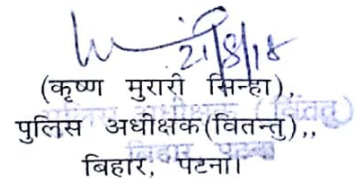 21/8/18
(कृष्ण मुरारी सिन्हा),
पुलिस अधीक्षक(वितन्तु),,
बिहार, पटना।